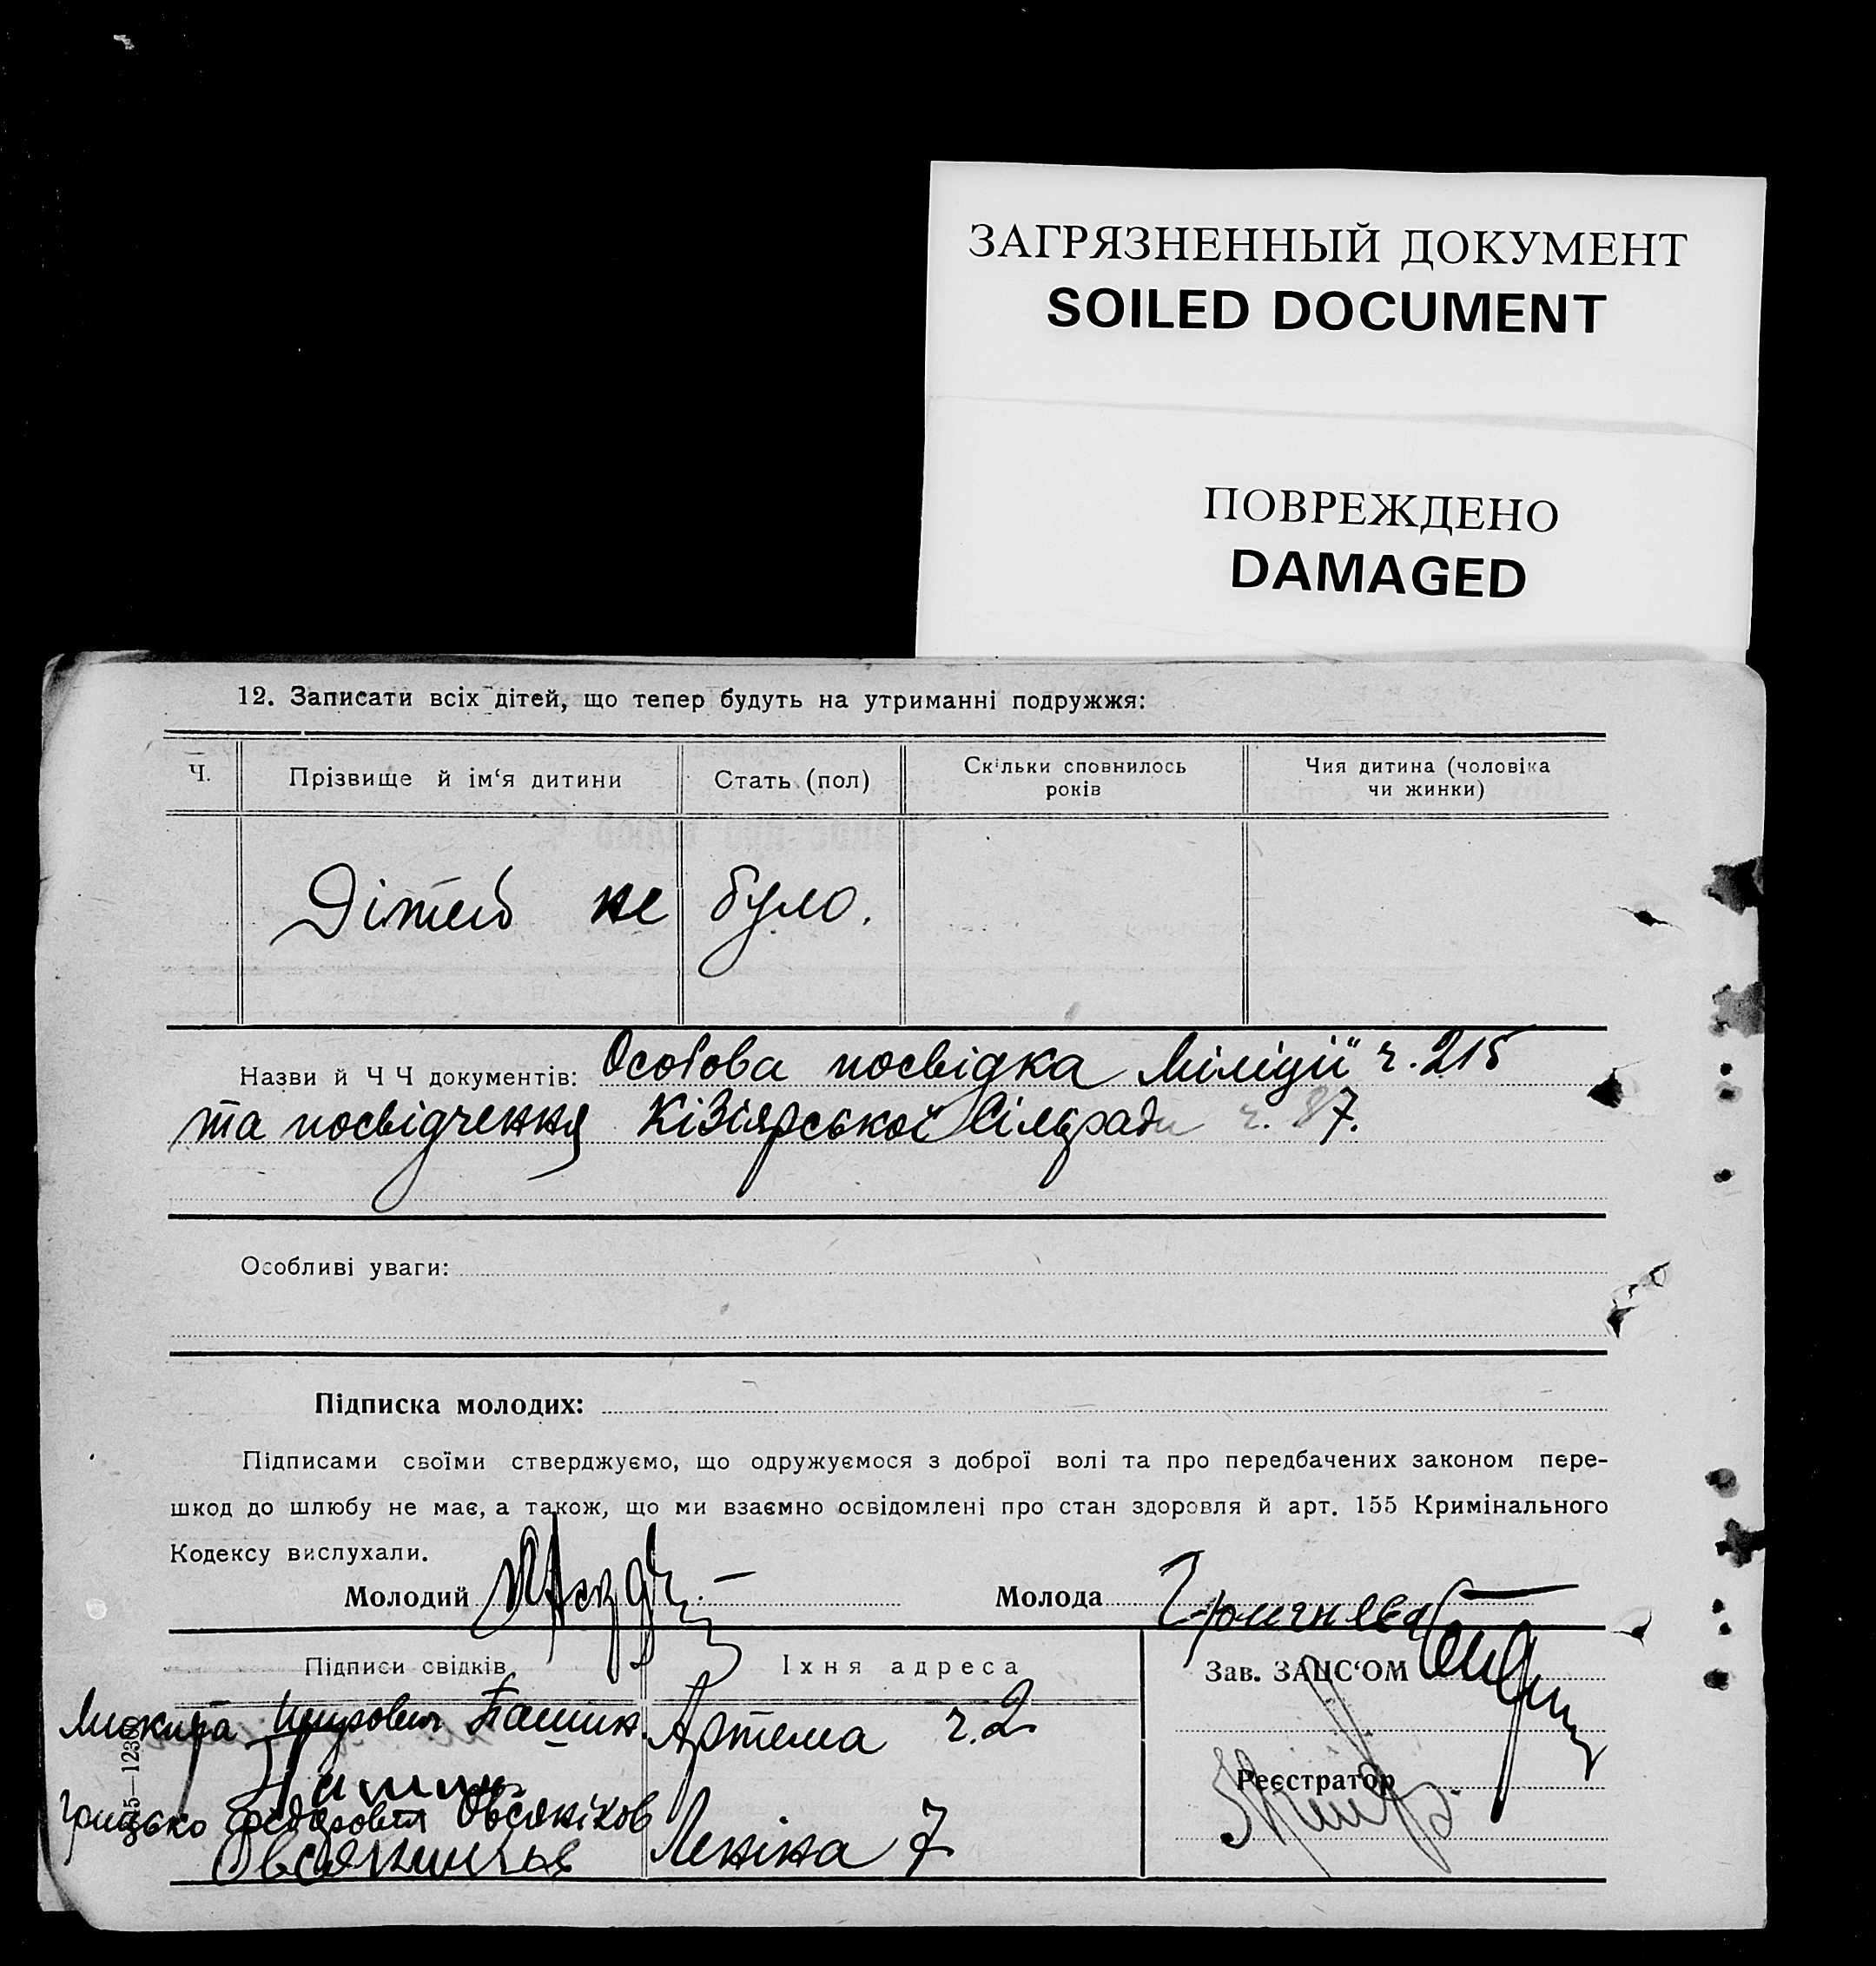 ЗАГРЯЗНЕННЫЙ ДОКУМЕНТ
SOILED DOCUMENT
ПОВРЕЖДЕНО
DAMAGED
12. Записати всіх дітей, що тепер будуть на утриманні подружжя:
Ч.
Прізвище й ім‘я дитини
Стать (пол)
Скільки сповнилось
років
Чия дитина (чоловіка
чи жинки)
Дітей не було.
Назви й Ч Ч документів: Особова посвідка Міліції ч. 215
та посвідчення Кізіярської Сільради ч. 87.
Особливі уваги:
Підписка молодих:
Підписами своїми стверджуємо, що одружуємося з доброї волі та про передбачених законом пере-
шкод до шлюбу не має, а також, що ми взаємно освідомлені про стан здоровля й арт. 155 Кримінального
Кодексу вислухали.
Молодий
Молода
Підписи свідків
Їхня адреса
Зав. ЗАЦС‘ОМ
Артема ч. 2
Реєстратор
Грицько Федорович Овсяніков
Леніна 7